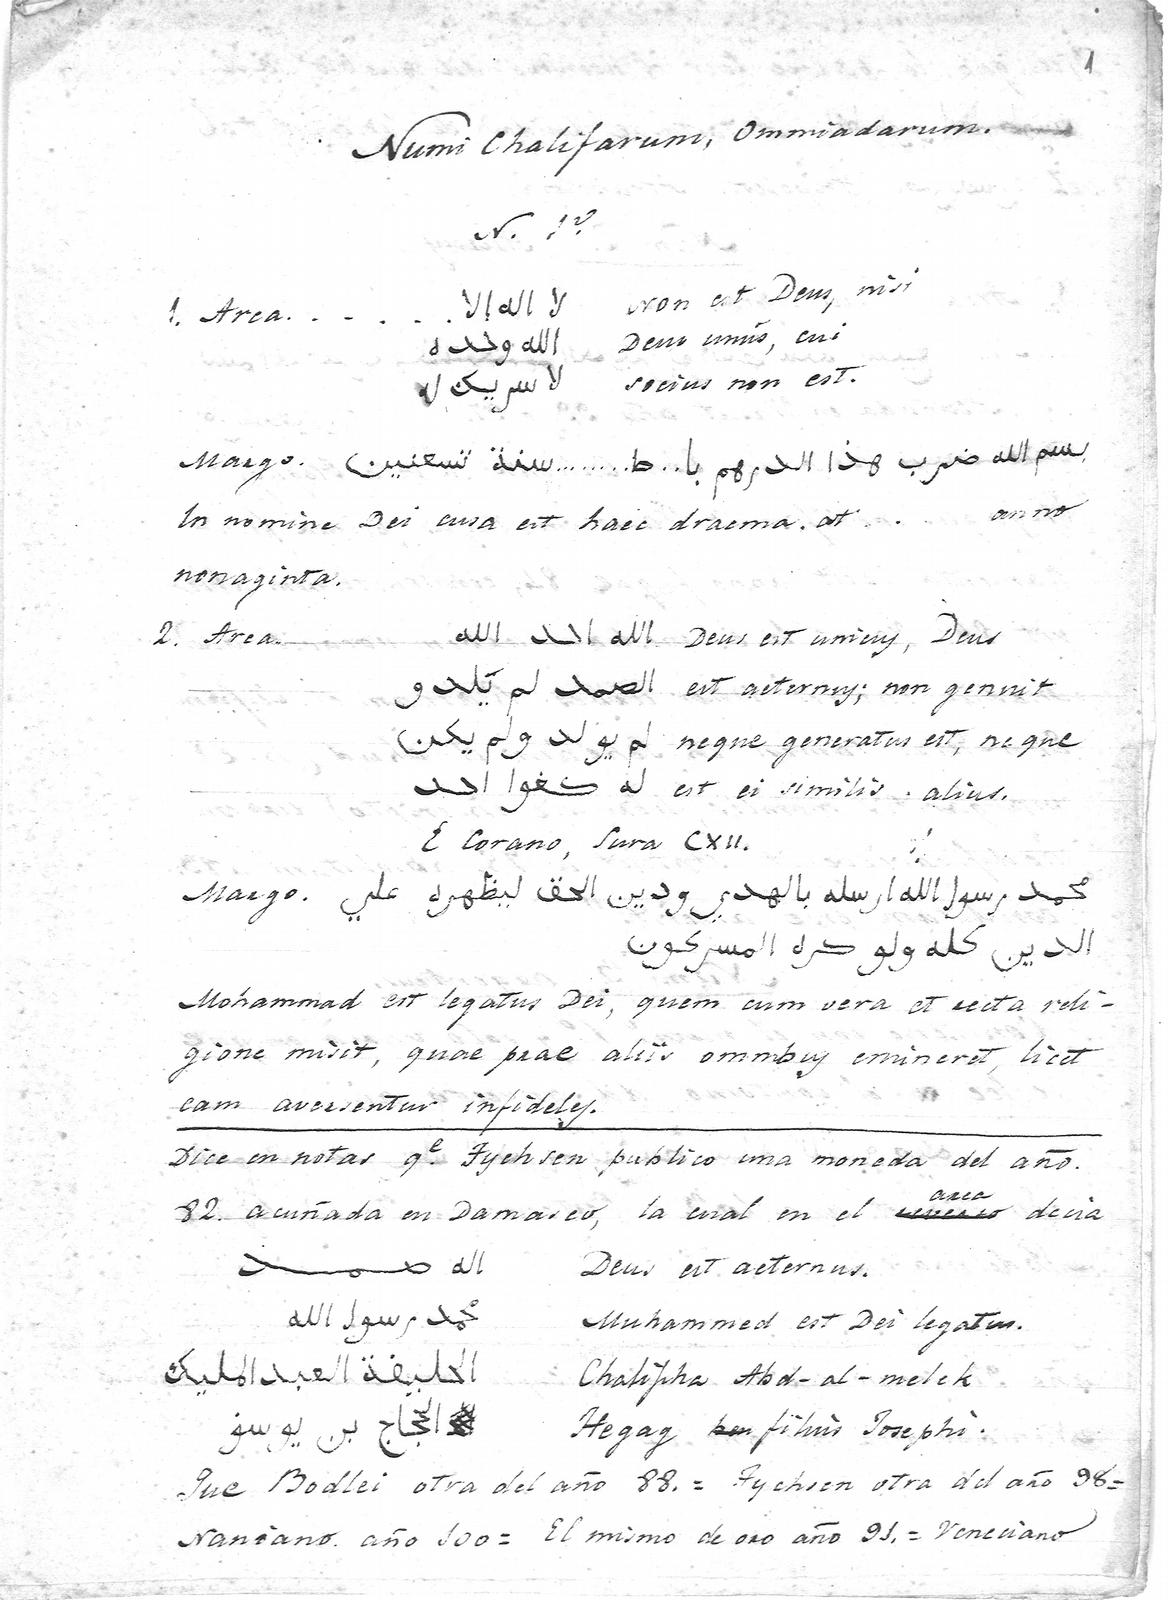 1
Numi Chalifarum, Ommiadarum.
N. 1º
1. Area. . - . . . لا اله الا Non est Deus, nisi
الله وحده Deus unus, cui
لا سريك له socius non est.
Margo. بسم الله ضرب هذا الدرهم با..ط........سنة تسعين
In nomine Dei cusa est haec dracma. at . . anno
nonaginta.
2. Area. الله احد الله Deus est unicus, Deus
الصمد لم يلد و est aeternus; non genuit
لم يولد ولم يكن neque generatus est, neque
له كفوا احد est ei similis . alius.
E Corano, Sura CXII.
Margo. محمد رسول الله ارسله بالهدي ودين الحق ليظهره علي
الدين كله ولو كره المسركون
Mohammad est legatus Dei, quem cum vera et recta reli-
gione misit, quae prae aliis omnibus emineret, licet
eam aversentur infideles.
Dice en notas qe. Tychsen publico una moneda del año.
82. acuñada en Damasco, la cual en el area decia
اله صمد Deus est aeternus.
محمد رسول الله Muhammed est Dei legatus.
الحليفة العبد المليك Chalipha Abd-al-melek
الحجاج بن يوسف Hegag filius Josephi.
Bodlei otra del año 88. = Tychsen otra del año 98=
Naniano. año 100= El mismo de oro año 91. = Veneciano